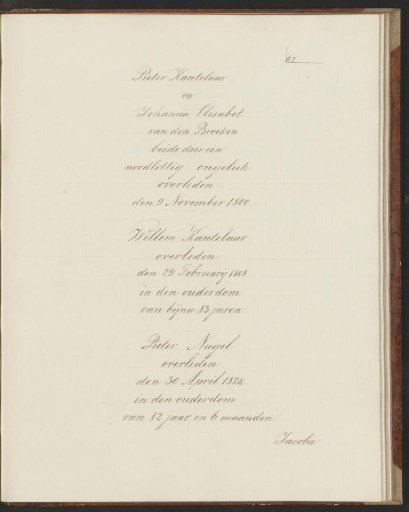 67
Pieter Kantelaar
en
Johanna Elisabet
van den Broeken
beide door een
noodlottig ongeluk
overleden
den 9 November 1800
Willem Kantelaar
overleden
den 29 February 1808
in den ouderdom
van bijna 83 jaren
Pieter Nagel
overleden
den 30 April 1824
in den ouderdom
van 82 jaar en 6 maanden
Jacoba